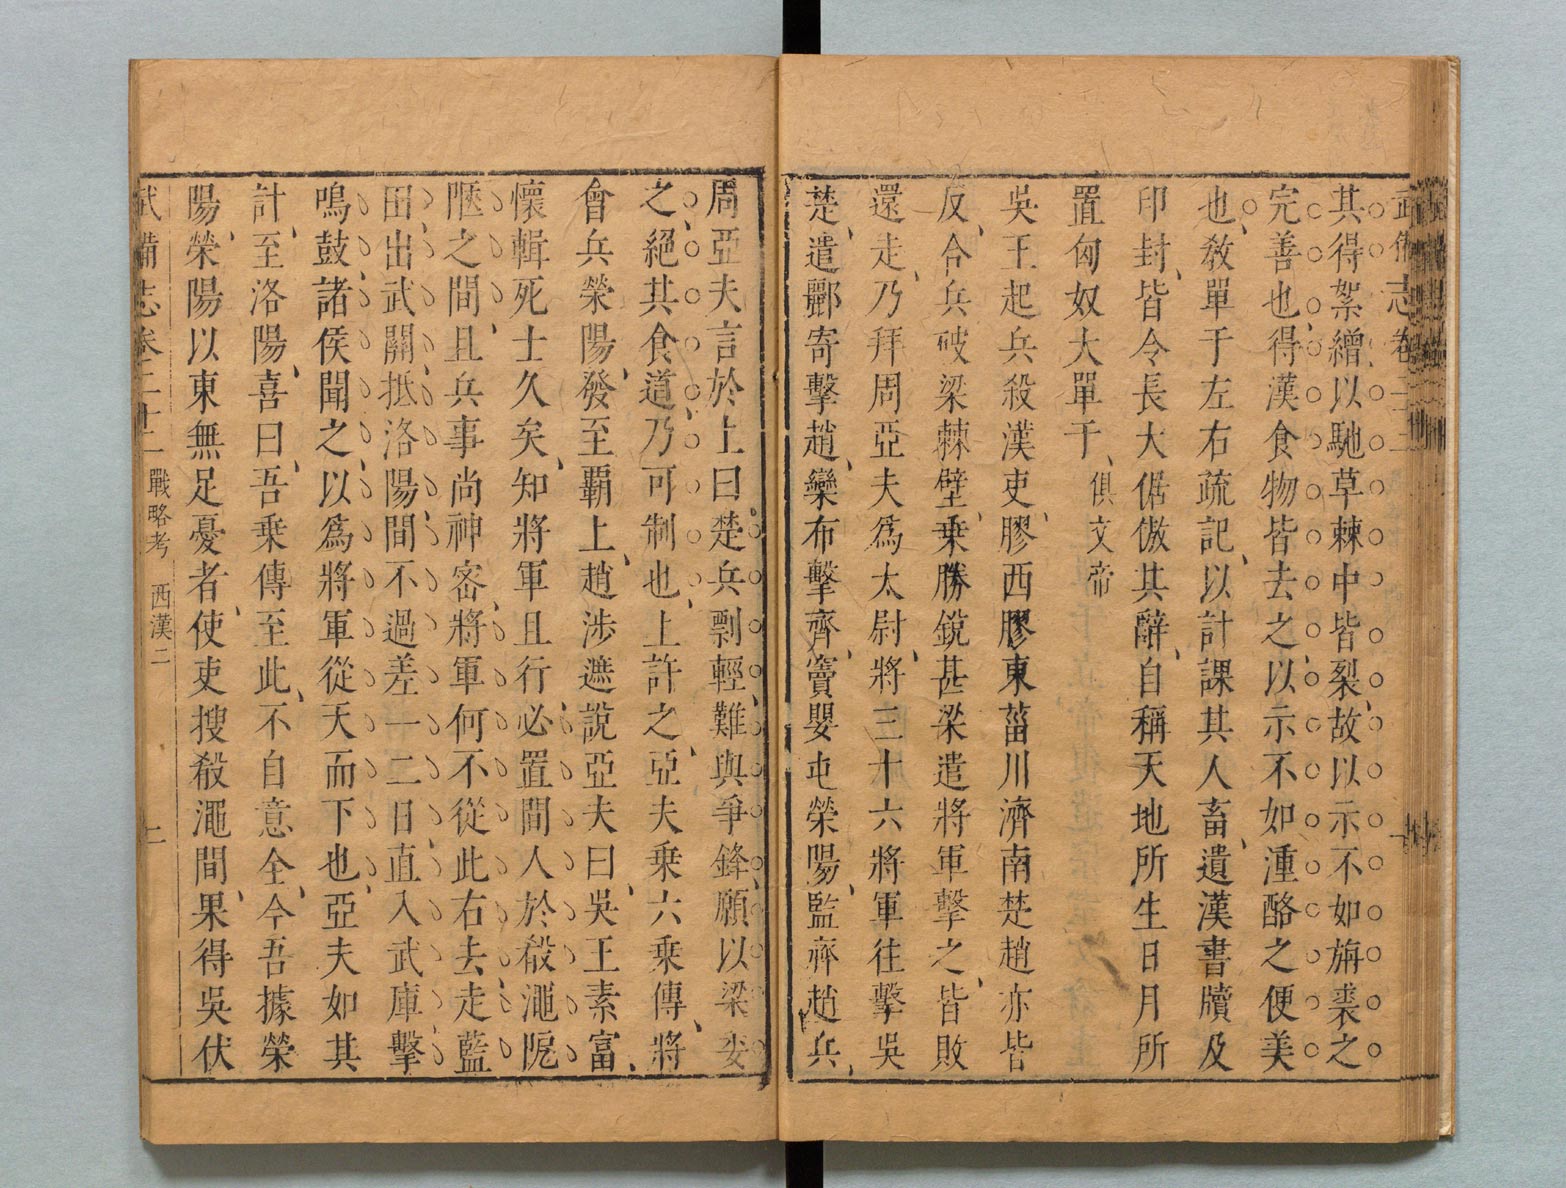 武備志卷二十二
其得絮繒以馳草棘中皆裂故以示不如旃裘之
完善也得漢食物皆去之以示不如湩酪之便美
也教單于左右疏記以計課其人畜遺漢書牘及
印封皆令長大倨傲其辭自稱天地所生日月所
置匈奴大單于俱文帝
吳王起兵殺漢吏膠西膠東菑川濟南楚趙亦皆
反合兵破梁棘壁乘勝銳甚梁遣將軍擊之皆敗
還走乃拜周亞夫為太尉將三十六將軍往擊吳
楚遣酈寄擊趙欒布擊齊竇嬰屯榮陽監齊趙兵
周亞夫言於上曰楚兵剽輕難與爭鋒願以梁委
之絕其食道乃可制也上許之亞夫乘六乘傳將
會兵榮陽發至霸上趙涉遮說亞夫曰吳王素富
懷輯死士久矣知將軍且行必置間人於殽澠阨
陿之間且兵事尚神密將軍何不從此右去走藍
田出武關抵洛陽間不過差一二日直入武庫擊
鳴鼓諸侯聞之以爲將軍從天而下也亞夫如其
計至洛陽喜曰吾乘傳至此不自意全今吾據榮
陽榮陽以東無足憂者使吏搜殽澠間果得吳伏
武備志卷二十二 戰略考 西漢二 二